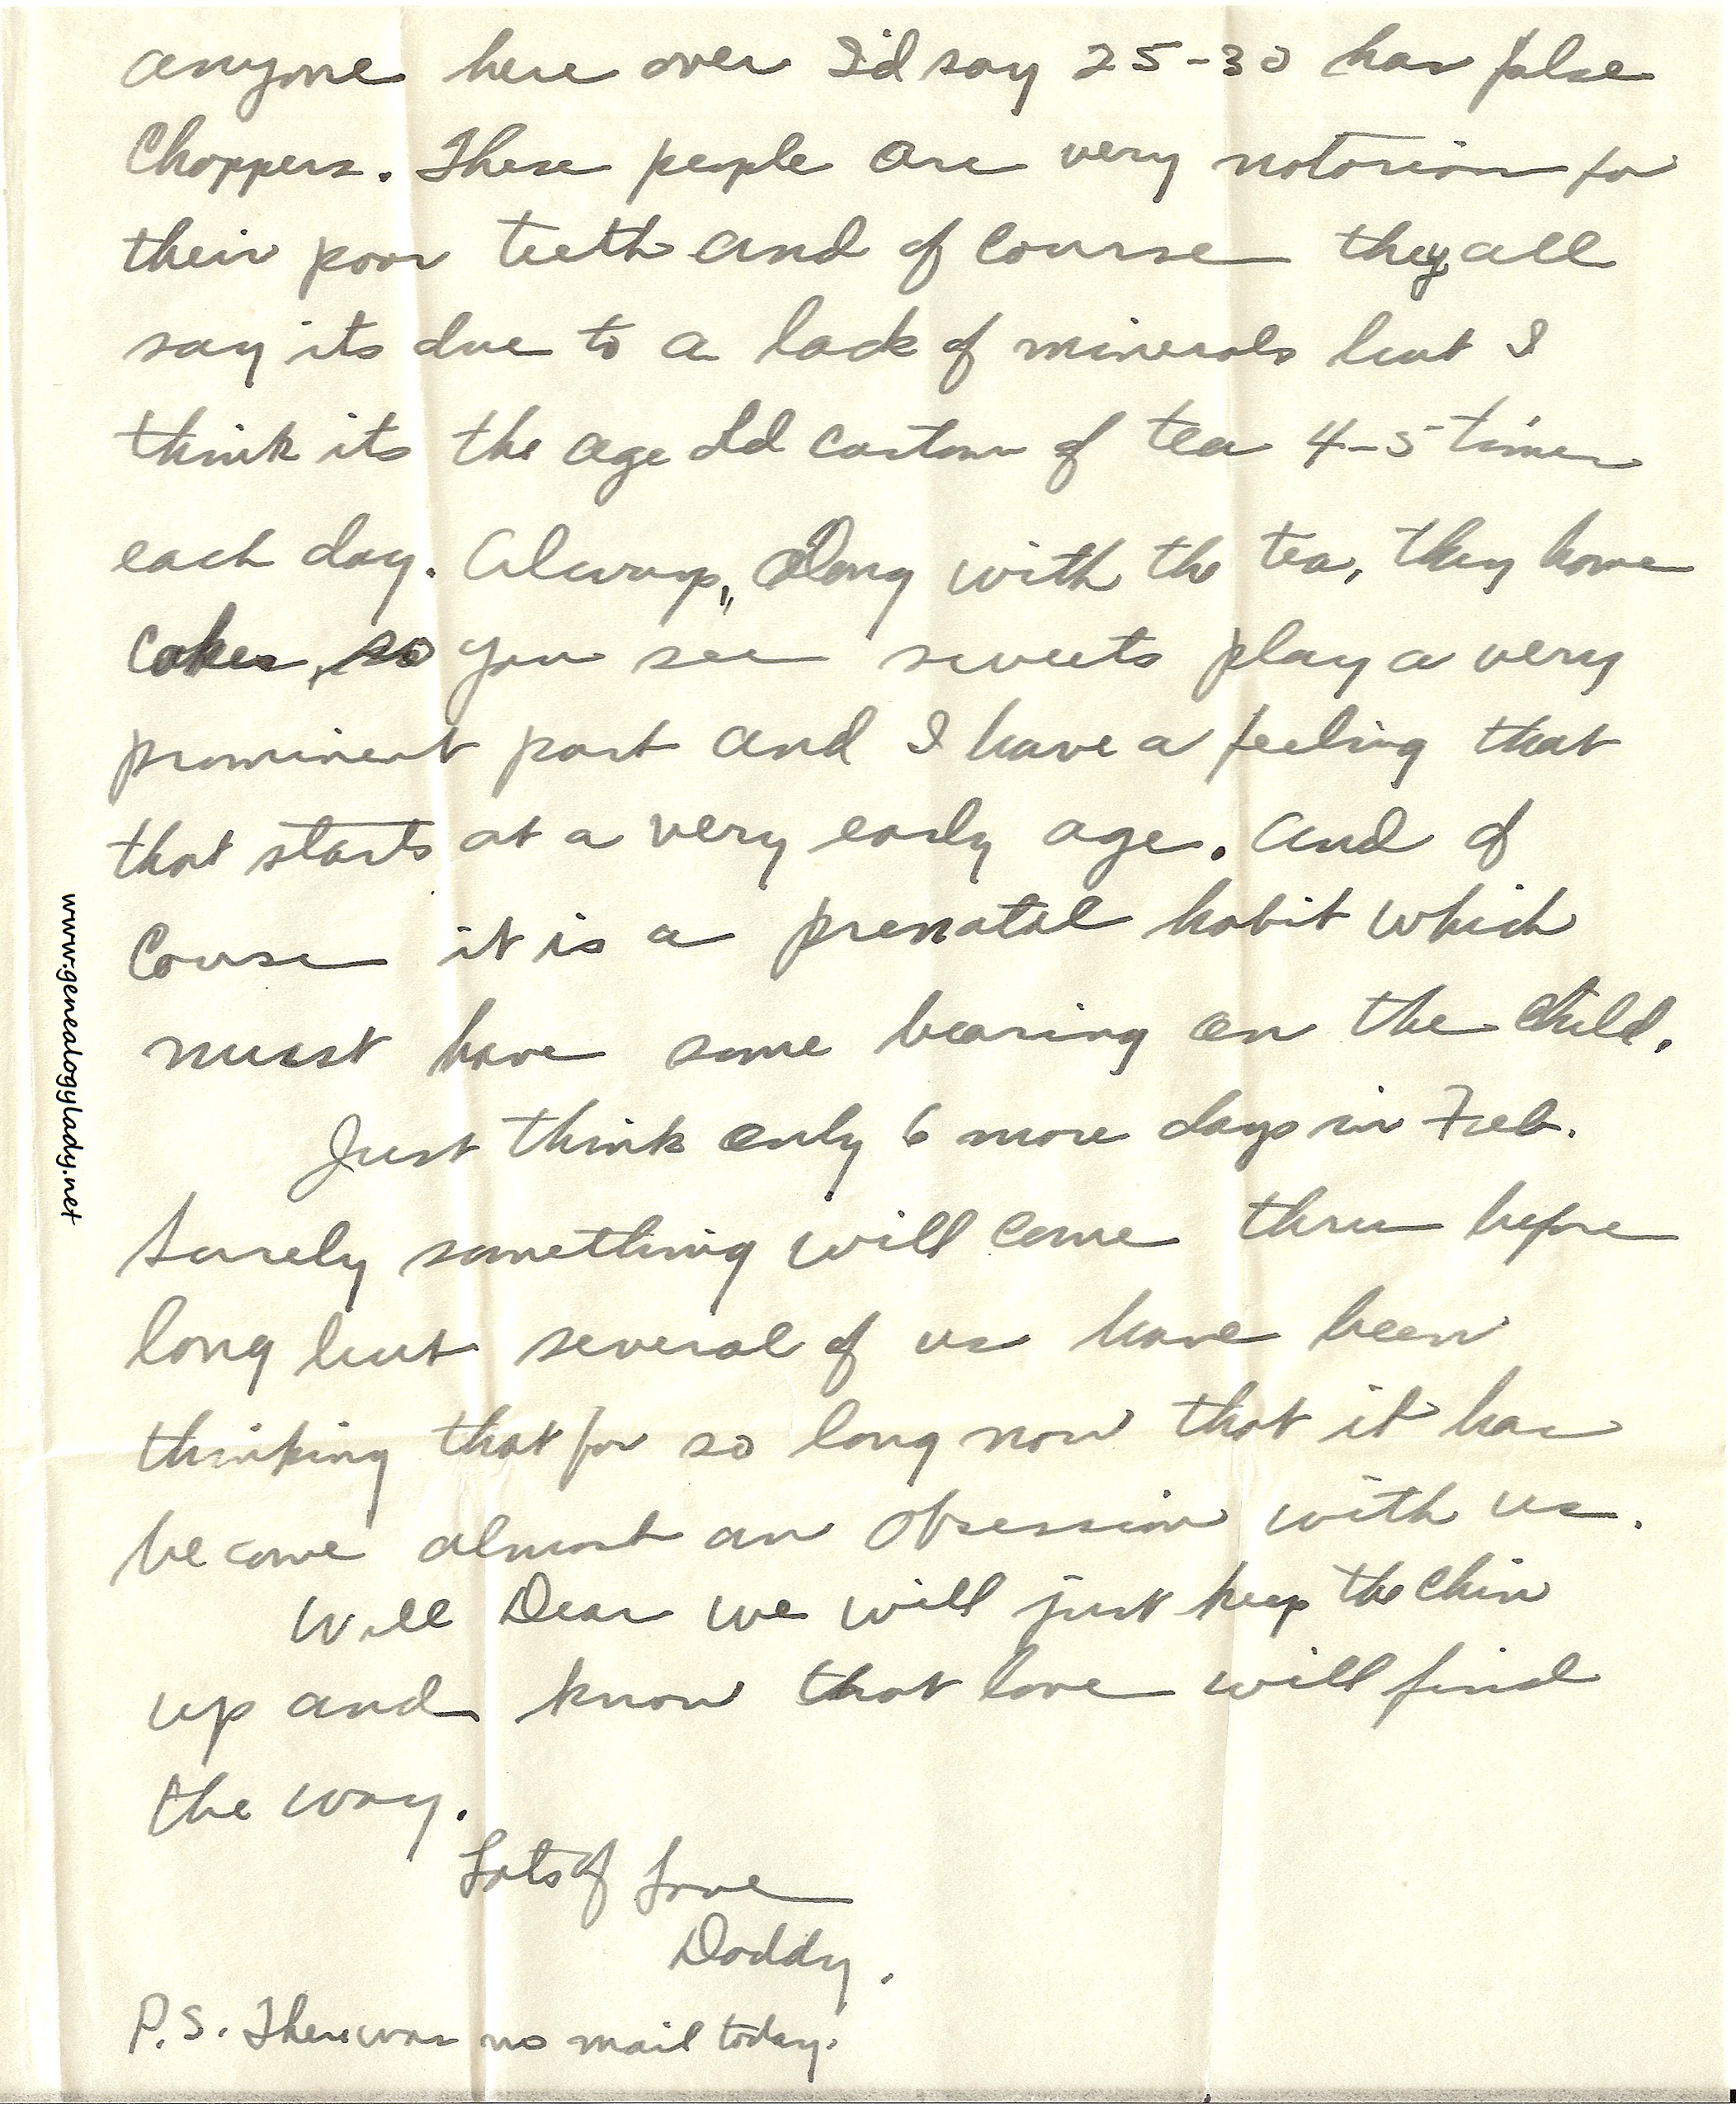 anyone here over I'd say 25-30 has false
Choppers. These people are very notorious for
their poor teeth and of course they all
say its due to a lack of minerals but I
think its the age old custom of tea 4-5 times
each day. Always, along with the tea, they have
Cakes, so you see sweets play a very
prominent part and I have a feeling that
that starts at a very early age. And of
Course it is a prenatal habit which
must have some bearing on the child.
Just think only 6 more days in Feb.
Surely something will come thru before
long but several of us have been
thinking that for so long now that it has
become almost an obsession with us.
Well Dear we will just keep the chin
up and know that love will find
the way.
Lots of Love
Daddy.
P.S. There was no mail today.
www.genealogylady.net